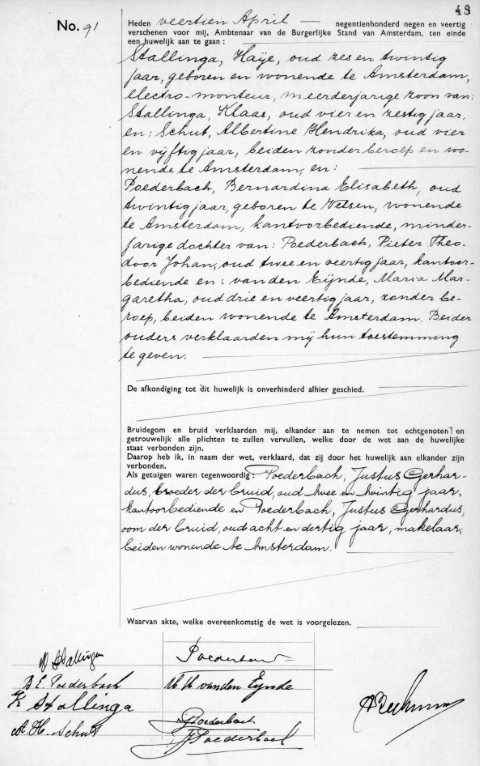 48
No. 91
Heden veertien April negentienhonderd negen en veertig
verschenen voor mij, Ambtenaar van de Burgerlijke Stand van Amsterdam, ten einde
een huwelijk aan te gaan:
Stallinga, Haije, oud zes en twintig
jaar, geboren en wonende te Amsterdam,
electro-monteur, meerderjarige zoon van:
Stallinga, Klaas, oud vier en zestig jaar,
en: Schut, Albertine Hendrika, oud vier
en vijftig jaar, beiden zonder beroep en wo-
nende te Amsterdam, en:
Poederbach, Bernardina Elisabeth, oud
twintig jaar, geboren te Velsen, wonende
te Amsterdam, kantoorbediende, minder-
jarige dochter van: Poederbach, Pieter Theo-
door Johan, oud twee en veertig jaar, kantoor-
bediende en: van den Eijnde, Maria Mar-
garetha, oud drie en veertig jaar, zonder be-
roep, beiden wonende te Amsterdam. Beider
ouders verklaarden mij hun toestemming
te geven.
De afkondiging tot dit huwelijk is onverhinderd alhier geschied.
Bruidegom en bruid verklaarden mij, elkander aan te nemen tot echtgenoten en
getrouwelijk alle plichten te zullen vervullen, welke door de wet aan de huwelijke
staat verbonden zijn.
Daarop heb ik, in naam der wet, verklaard, dat zij door het huwelijk aan elkander zijn
verbonden.
Als getuigen waren tegenwoordig: Poederbach, Justus Gerhar-
dus, broeder der bruid, oud twee en twintig jaar,
kantoorbediende en Poederbach, Justus Gerhardus,
oom der bruid, oud acht en dertig jaar, makelaar,
beiden wonende te Amsterdam.
Waarvan akte, welke overeenkomstig de wet is voorgelezen.
Stallinga
B E. Poederbach
K Stallinga
A H. Schut
Poederbach
M M vanden Eynde
Poederbach
Poederbach